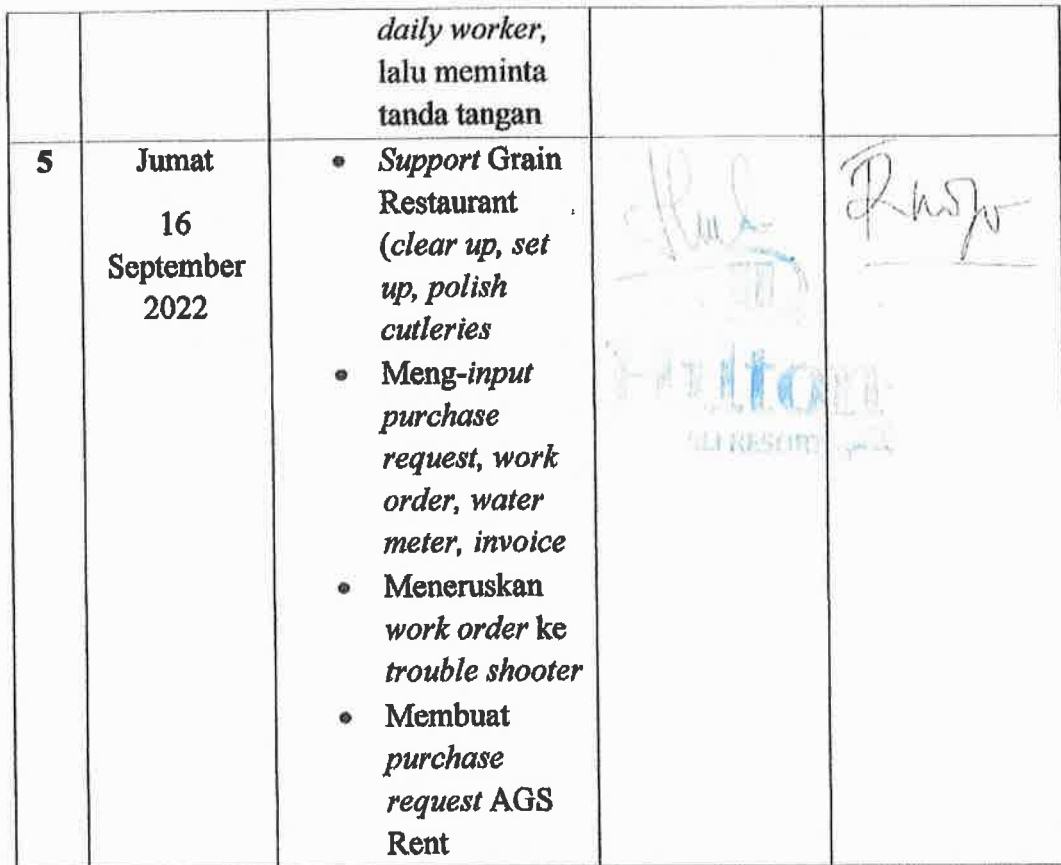 daily worker,
lalu meminta
tanda tangan
5
Jumat
16
September
2022
• Support Grain
Restaurant
(clear up, set
up, polish
cutleries
• Meng-input
purchase
request, work
order, water
meter, invoice
• Meneruskan
work order ke
trouble shooter
• Membuat
purchase
request AGS
Rent
Hilton
RESORT